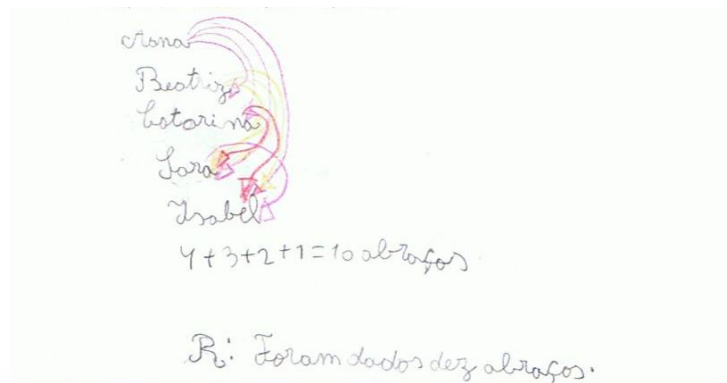 Ana
Beatriz
Catarina
Sara
Isabel
4+3+2+1=10 abraços
R: Foram dados dez abraços.